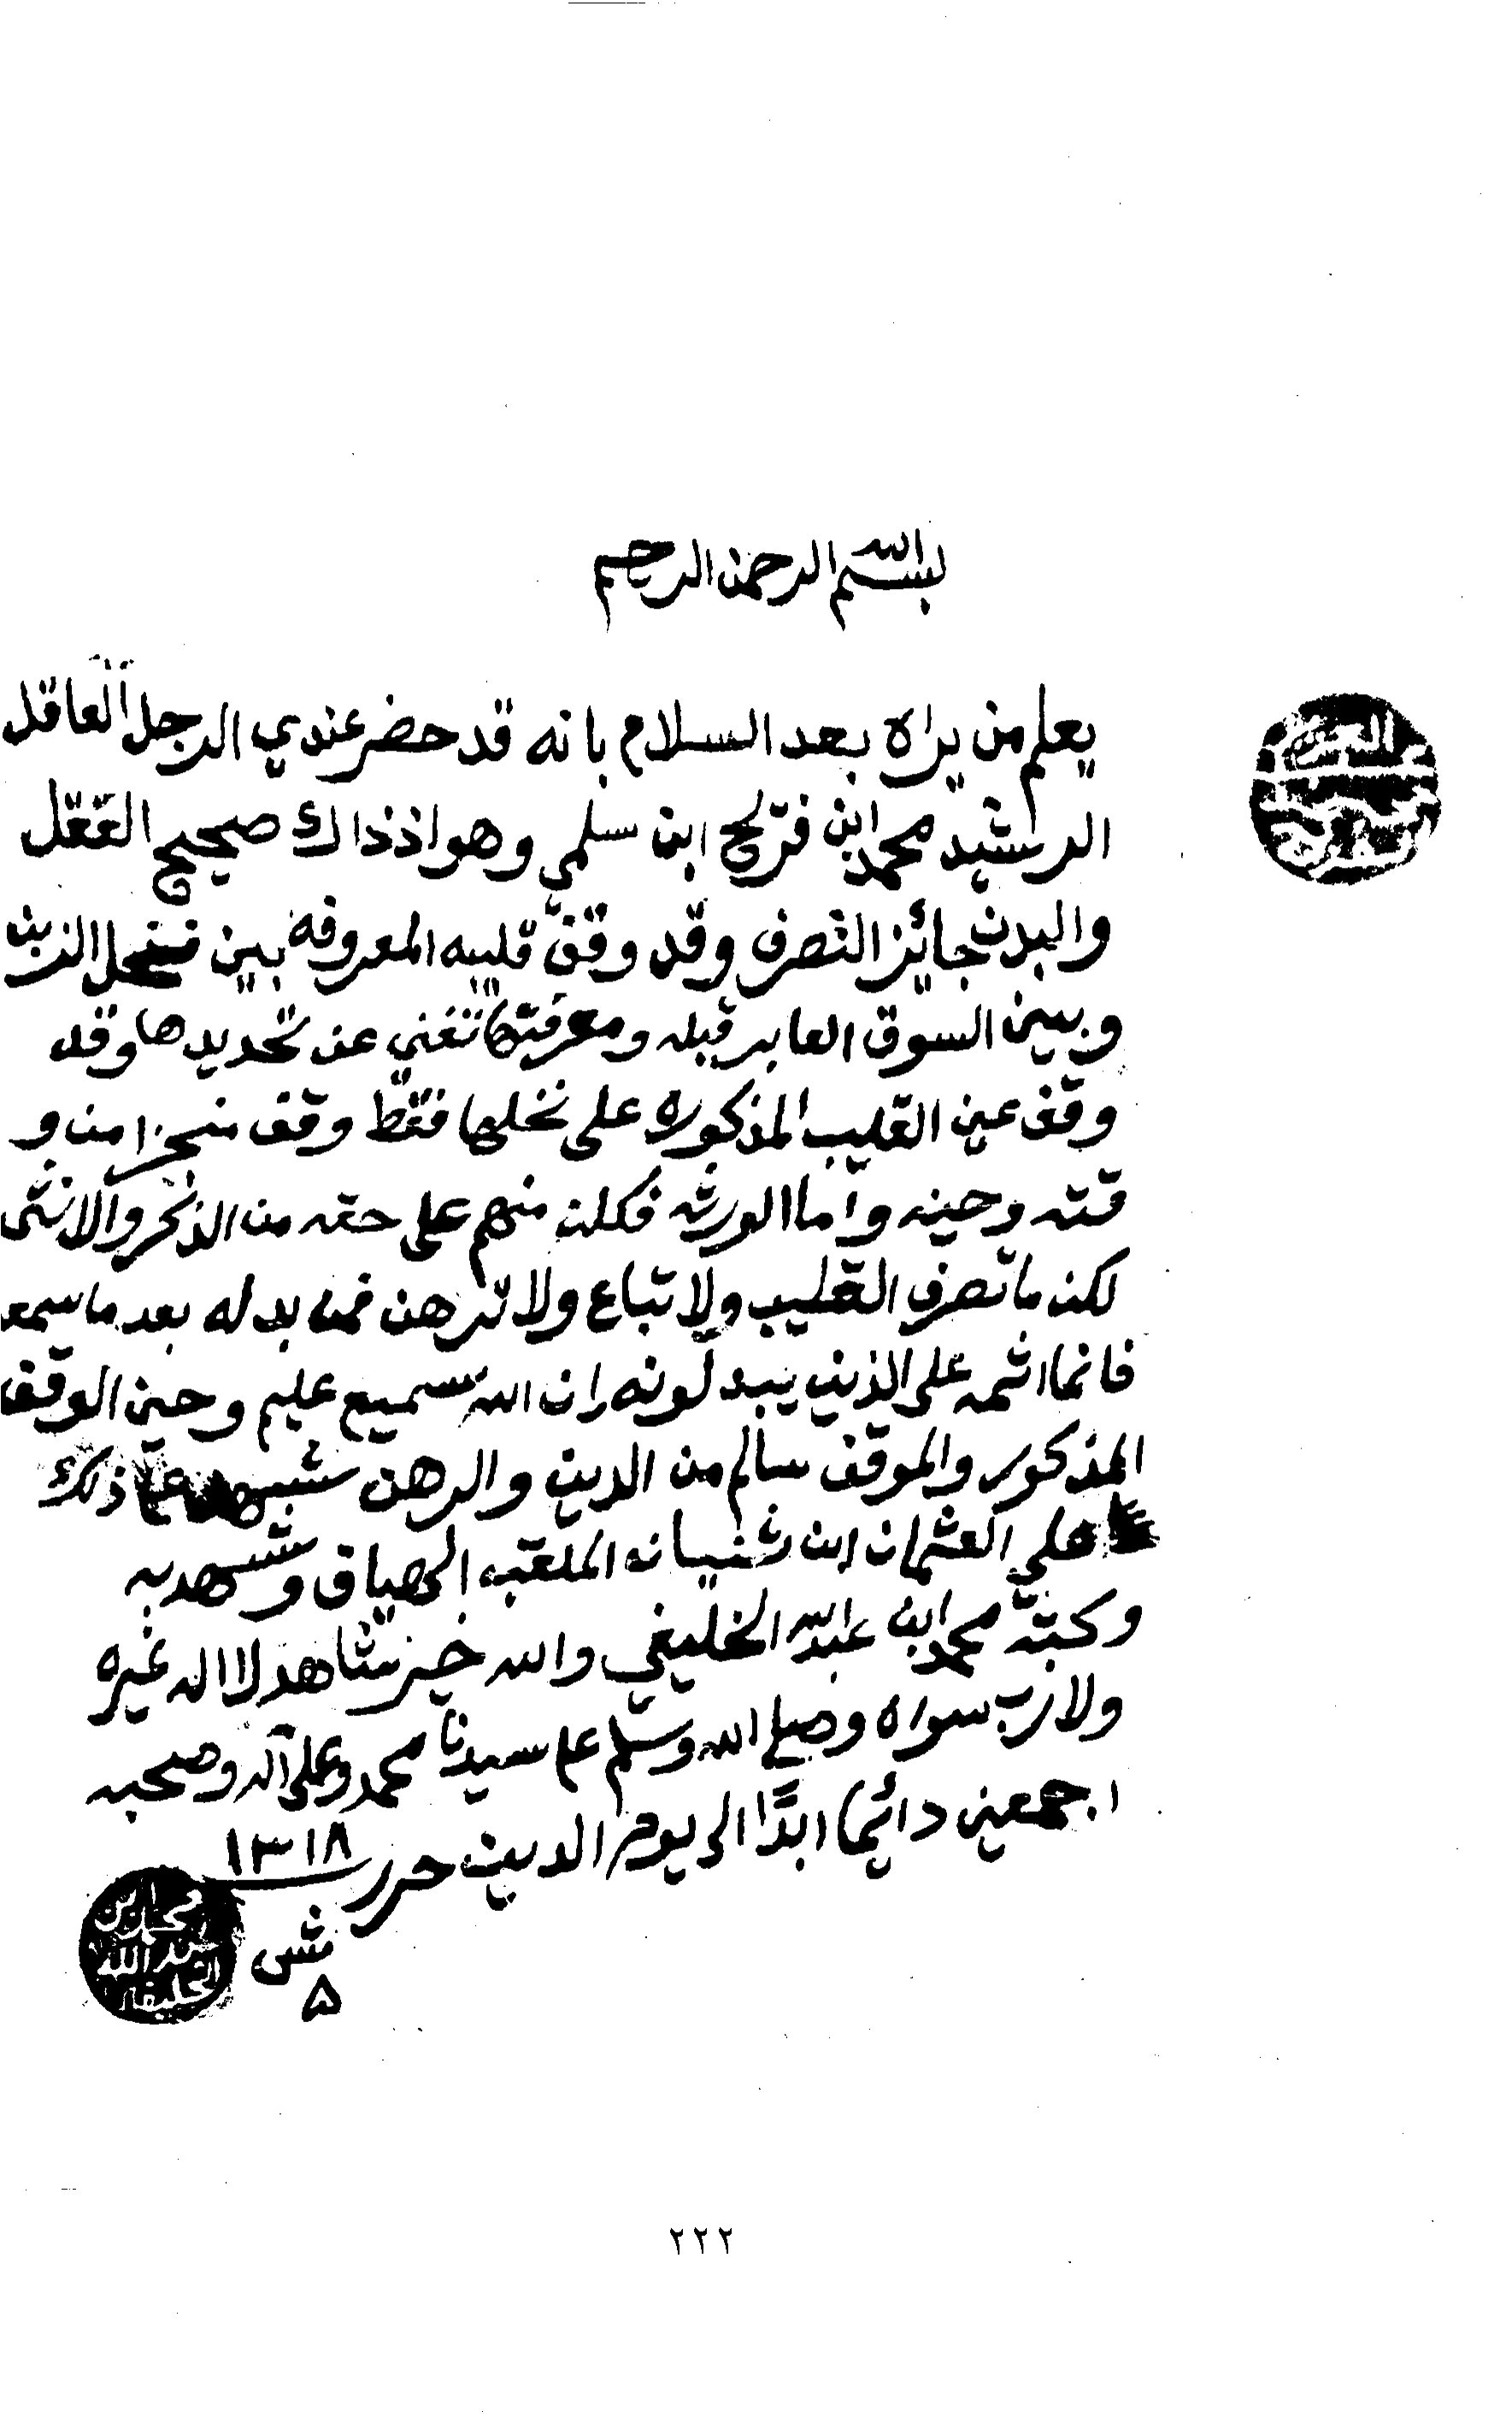 بسم الله الرحمن الرحيم
يعلم من يراه بعد السلام بانه قد حضر عندي الرجل العاقل
الرشيد محمد ابن فريح ابن سلمي وهو اذ ذاك صحيح العقل
والبدن جائز التصرف وقد وقف قليبه المعروفه بين نخل الزبن
وبين السوق العابر قبله ومعرفتها تغني عن تحديدها وقد
وقف عين القليب المذكوره على نخلها فقط وقف منجزا من و
قته وحينه واما الورثه فكلن منهم على حقه من الذكر والانثى
لكن ما تصرف القليب ولا تباع ولا ترهن فمن بدله بعد ما سمعه
فانما اثمه على الذين يبدلونه ان الله سميع عليم وحين الوقف
المذكور والموقف سالم من الدين والرهن شهد على ذلك
علي العثمان ابن شنيان الملقب وشهد به
وكتبه محمد ابن عبدالله الخليفي والله خير شاهد لا اله غيره
ولا رب سواه وصلى الله وسلم على سيدنا محمد وعلى آله وصحبه
اجمعين دائما ابدًا الى يوم الدين حرر ١٣١٨
ش
٥
محمد ابن
عبد الله
الخليفي
٢٢٢